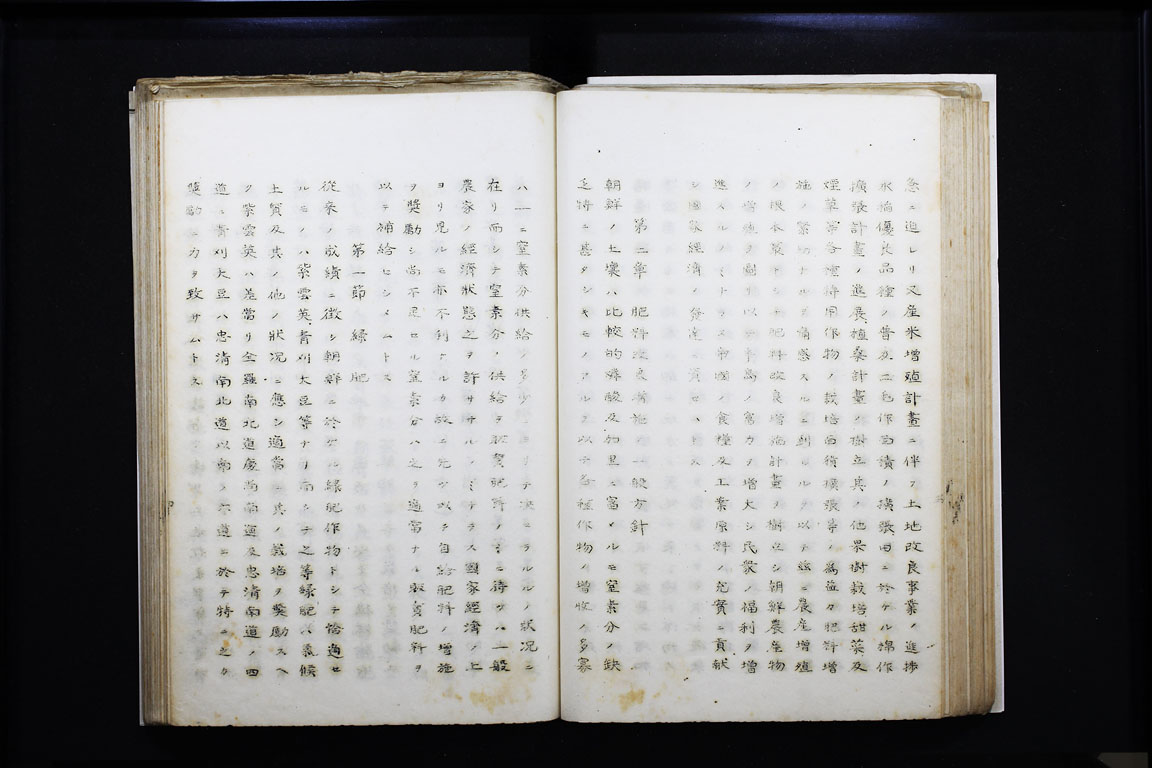 急ニ進レリ又産米増殖計畫ニ伴フ土地改良事業ノ進捗
水稲優良品種ノ普及二毛作面積ノ擴張田ニ於ケル棉作
擴張計畫ノ進展植桑計畫ノ樹立其ノ他果樹栽培甜菜及
煙草等各種特用作物ノ栽培面積擴張等ノ為益々肥料増
施ノ緊切ナルヲ痛感スルニ到レルヲ以テ茲ニ農産増殖
ノ根本策トシテ肥料改良増施計畫ヲ樹立シ朝鮮農産物
ノ増殖ヲ圖リ以テ半島ノ富力ヲ増大シ民衆ノ福利ヲ増
進スルノミナラス帝國ノ食糧及工業原料ノ充實ニ貢獻
シ國家經濟ノ發達ニ資セ
第二章 肥料改良増施ノ一般方針
朝鮮ノ土壤ハ比較的燐酸及加里ニ富メルモ窒素分ノ缺
乏特ニ甚タシキモノアルヲ以テ各種作物ノ増收ノ多寡
ハ一ニ窒素分供給ノ多少ニ依リテ決セラルルノ状况ニ
在リ而シテ窒素分ノ供給ヲ販賣肥料ノミニ待ツハ一般
農家ノ經濟狀態之ヲ許サザルノミナラス國家經濟ノ上
ヨリ見ルモ亦不利ナルカ故ニ先ツ以テ自給肥料ノ増施
ヲ奬勵シ尚不足セル窒素分ハ之ヲ適當ナル販賣肥料ヲ
以テ補給セシメムトス
第一節 緑肥
從來ノ成績ニ徴シ朝鮮ニ於ケル緑肥作物トシテ恰適セ
ルモノハ紫雲英青刈大豆等ナリ而シテ之等緑肥ハ氣候
土質及其ノ他ノ狀况ニ應シ適當ニ其ノ栽培ヲ奬勵スヘ
ク紫雲英ハ差當リ全羅南北道慶尚南道及忠清南道ノ四
道ニ青刈大豆ハ忠清南北道以南ノ各道ニ於テ特ニ之カ
奬勵ニ力ヲ致サムトス